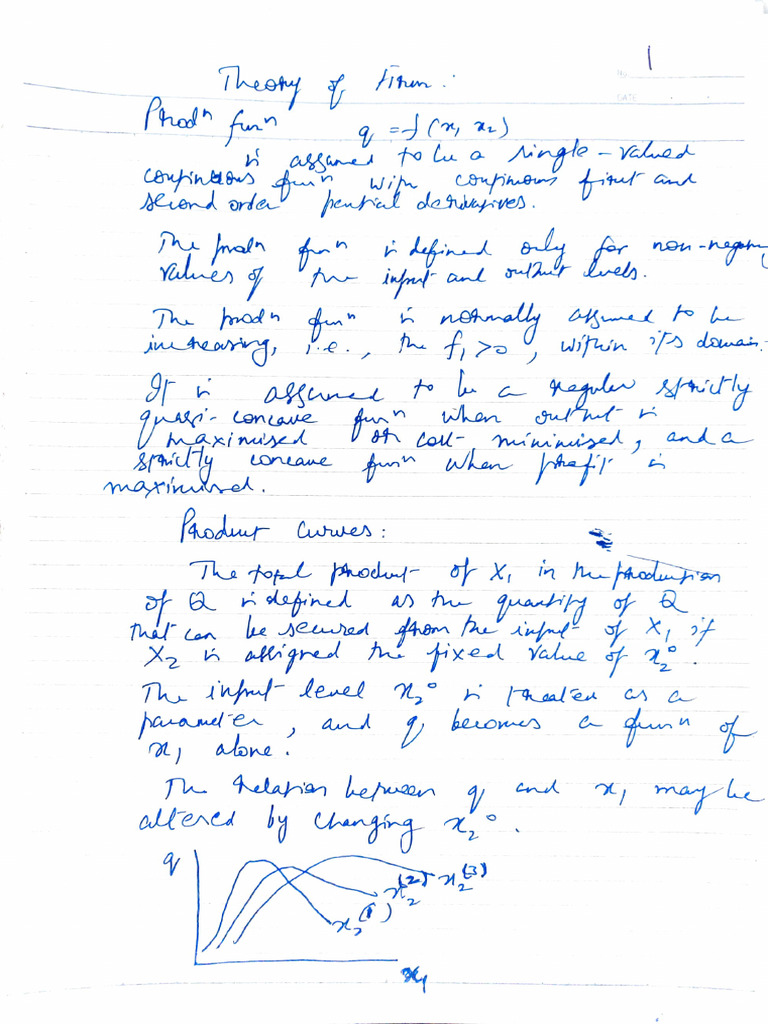 1
No.
DATE
Theory of Firm:
Prodⁿ funⁿ q = f(x₁ x₂)
is assumed to be a single-valued
continuous funⁿ with continuous first and
second order partial derivatives.
The prodⁿ funⁿ is defined only for non-negative
values of the input and output levels.
The prodⁿ funⁿ is normally assumed to be
increasing, i.e., the f₁>0, within its domain.
It is assumed to be a regular strictly
quasi-concave funⁿ when output is
maximised or cost minimised, and a
strictly concave funⁿ when profit is
maximised.
Product Curves:
The total product of X₁ in the production
of Q is defined as the quantity of Q
that can be secured from the input of X₁ if
X₂ is assigned the fixed value of x₂⁰.
The input level x₂⁰ is treated as a
parameter, and q becomes a funⁿ of
x₁ alone.
The relation between q and x₁ may be
altered by changing x₂⁰.
q
x₂⁽¹⁾ x₂⁽²⁾ x₂⁽³⁾
x₁